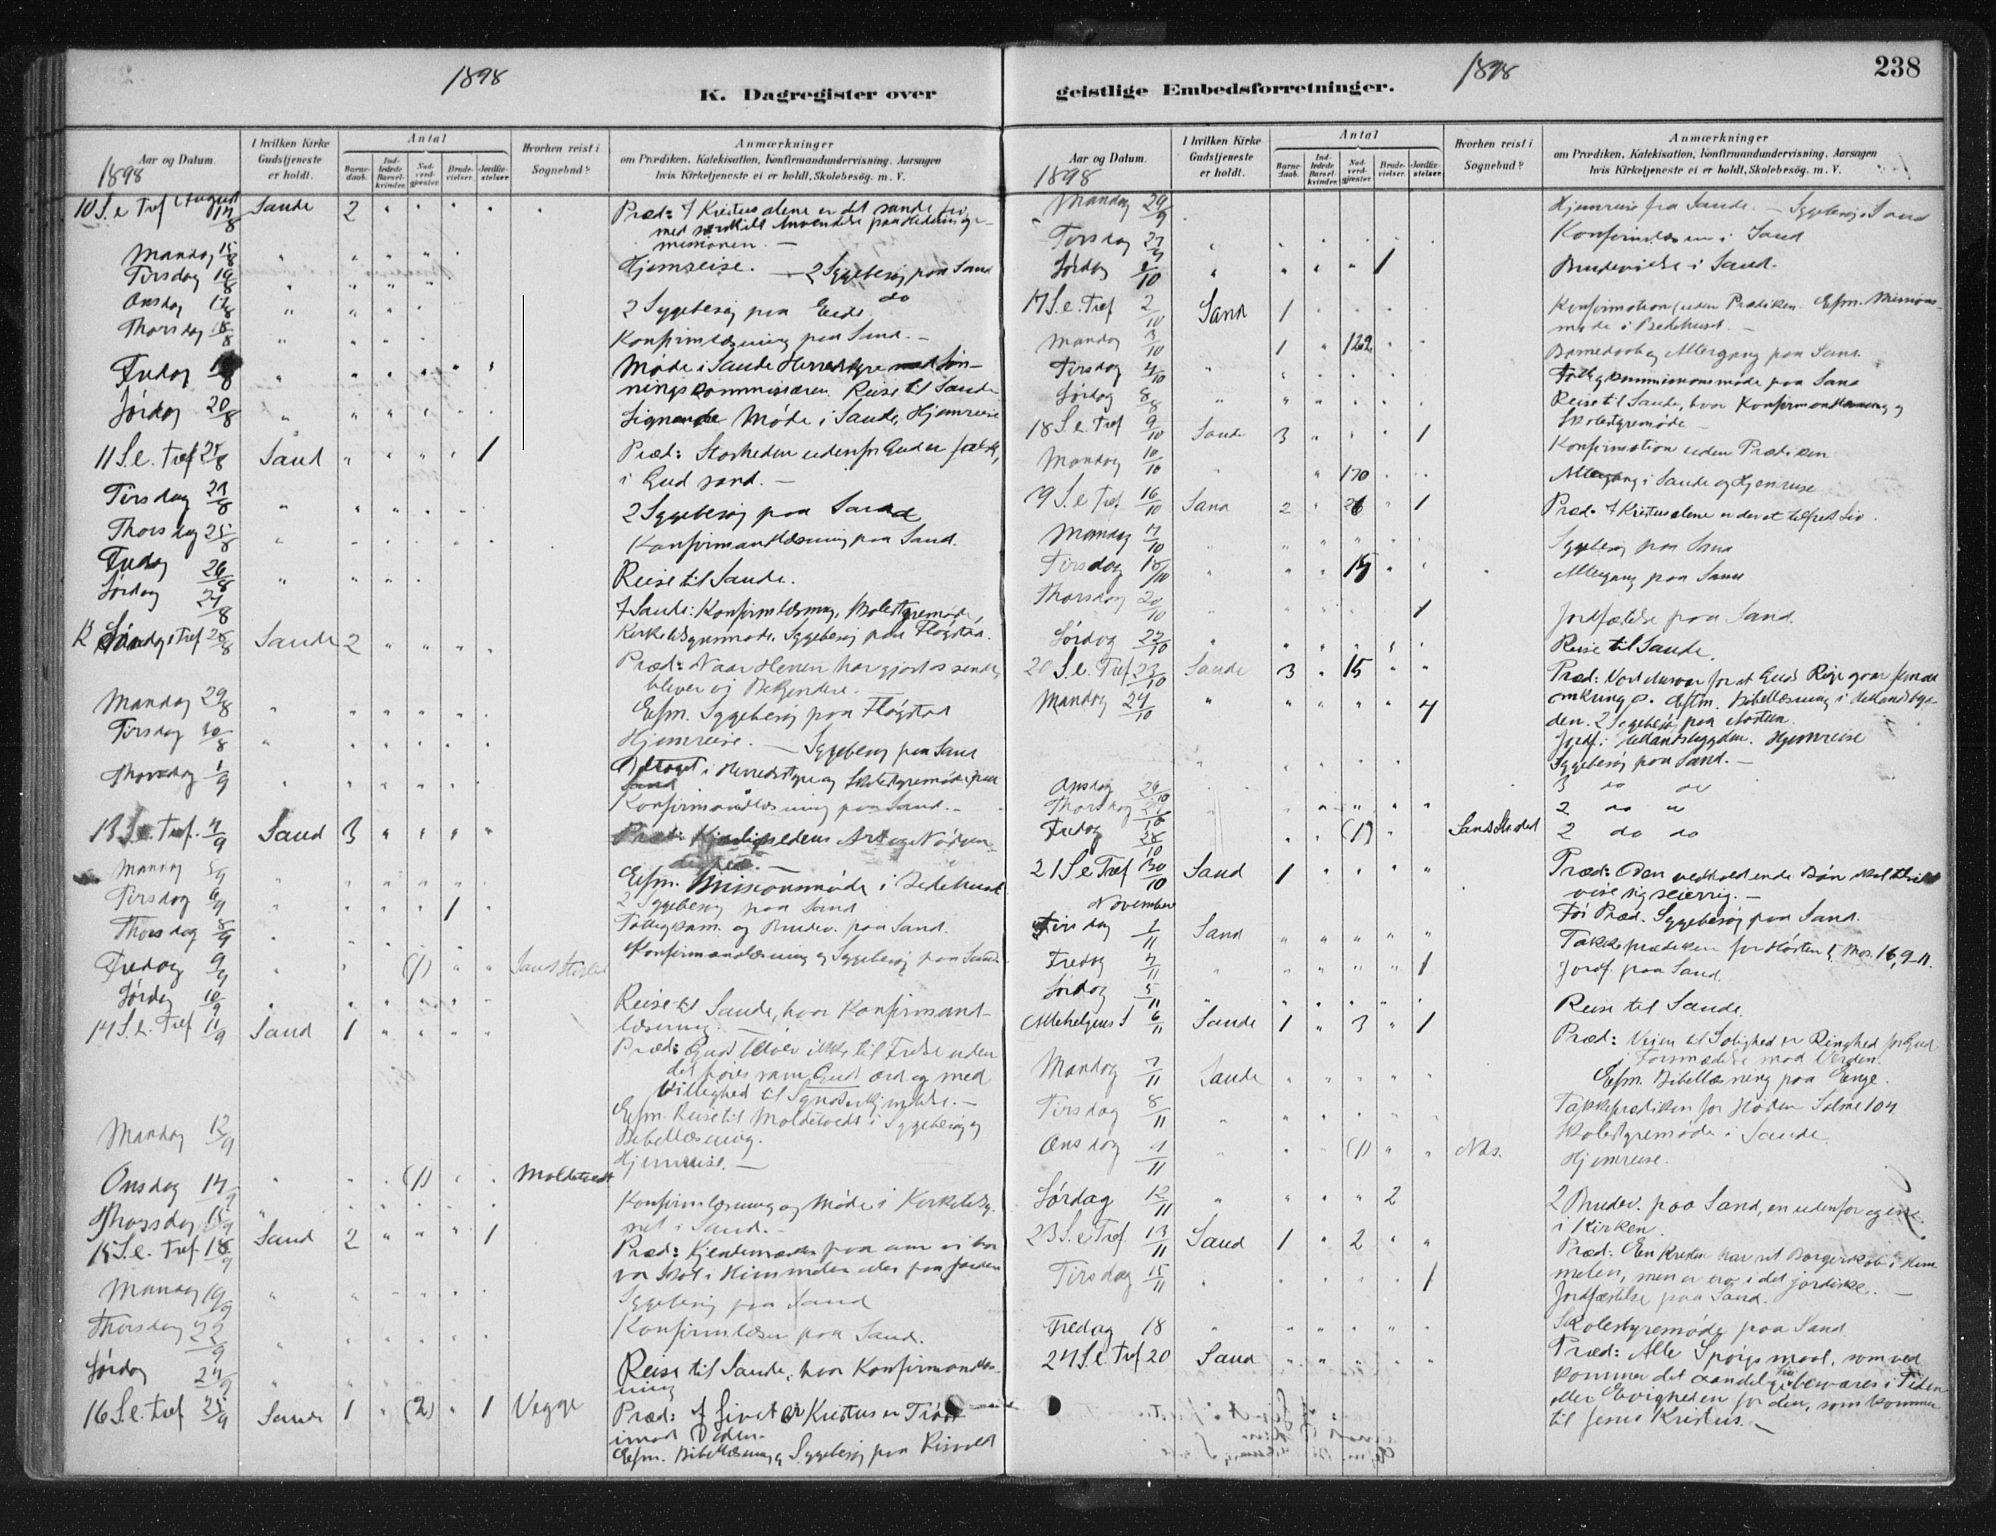 1898
K. Dagregister over
Aar og Datum.
1898
I hvilken Kirke Gudstjeneste er holdt.
Antal
Barne-daab.
Ind-ledede Barsel-kvinder.
Nad-verd-gjester
Brude-vielser.
Jordfæ-stelser
Hvorhen reist i Sognebud?
Anmærkninger
om Prædiken, Katekisation, Konfirmandundervisning, Aarsagen
hvis Kirketjeneste ei er holdt, Skolebesøg. m. V.
10 S. e Tref August 14/8 Sande 2 Præd: I Kristus alene er det sande Liv
med særskilt Anvendelse paa Hedninge-
missionen. —
Mandag 15/8 Hjemreise. — 2 Sygebesøg paa Sand
Tirsdag 16/8
Onsdag 17/8 2 Sygebesøg paa Eide do
Thorsdag 18/8 Konfirmlæsning paa Sand. —
Fredag Møde i Sande Herredstyre med Løn-
ningskommissæren. Reise til Sande
Lørdag 20/8 Lignende Møde i Sande, Hjemreise
11 S. e. Tref 21/8 Sand 1 Præd: Storheden udenfor Gud er falsk,
i Gud sand. —
Tirsdag 2 Sygebesøg paa Sand
Thorsdag 25/8 Konfirmantlæsning paa Sand.
Fredag 26/8 Reise til Sande.
Lørdag 27/8 I Sande: Konfirmlæsning, Skolestyremøde,
Kirketilsynsmøde, Sygebesøg paa Fløgstad.
12 Søndag e Tref 28/8 Sande 2
Præd: Naar Herren har gjort os seende,
bliver vi Bekjendere.
Mandag 29/8 Efm. Sygebesøg paa Fløgstad
Tirsdag 30/8 Hjemreise. — Sygebesøg paa Sand
Thorsdag 1/9 Deltaget i Herredstyre og Skolestyremøde paa
Sand
Konfirmandlæsning paa Sand. —
13 S. e. Tref. 4/9 Sand 3 Præd: Kjærlighedens Art og Nødven-
dighed. —
Mandag 5/9 Efm. Missionsmøde i Bedehuset
Tirsdag 6/9 1 2 Sygebesøg paa Sand
Thorsdag 8/9 Fattigkom. og Brudev. paa Sand.
Fredag 9/9 (1) Konfirmandlæsning og Sygebesøg paa Sand
Lørdag 10/9 Reise til Sande, hvor Konfirmand-
læsning. —
14 S. e. Tref 11/9 Sand 1
Præd: Gud bliver ikke til Frelse uden
det høres som Guds ord og med
Villighed til Syndserkjendelse. —
Efm. Reise til Moldetvedt i Sygebesøg og
Bibellæsning.
Mandag 12/9 Hjemreise. —
Onsdag 14/9 (1) Moldetvedt
Konfirmlæsning og Møde i Kirketilsy-
net i Sand. —
Thorsdag 15/9
15 S. e. Tref 18/9 Sand 2 1 Præd: Kjendemærker paa om vi har
vor Skat i Himmelen eller paa Jorden
Mandag 19/9 Sygebesøg paa Sand
Thorsdag 22/9 Konfirmlæsn paa Sand.
Lørdag 24/9 Reise til Sande, hvor Konfirmandlæs-
ning
16 S. e. Tref 25/9 Sande 1 (2) 1 Vegge Præd: I Livet er Kristus en Trøst
imod Døden.
Efm. Bibellæsning & Sygebesøg paa Risvold
1898
238
geistlige Embedsforretninger.
Aar og Datum.
1898
I hvilken Kirke Gudstjeneste er holdt.
Antal
Barne-daab.
Ind-ledede Barsel-kvinder
Nad-verd-gjester
Brude-vielser.
Jordfæ-stelser
Hvorhen reist i Sognebud?
Anmærkninger
om Prædiken, Katekisation, Konfirmandundervisning, Aarsagen
hvis Kirketjeneste ei er holdt, Skolebesøg. m. V.
Mandag Hjemreise fra Sande. — Sygebesøg i Sand
Torsdag Konfirmlæsn i Sand
Lørdag 1/10 1 Brudevielse i Sand.
17 S. e. Tref 2/10 Sand 1 Konfirmation uden Prædiken. Efm. Missions-
møde i Bedehuset. —
Mandag 3/10 1 122 Barnedaab og Altergang paa Sand.
Tirsdag 4/10 Fattigkommissionsmøde paa Sand
Lørdag 8/8 Reise til Sande, hvor Konfirmandlæsning og
Skolestyremøde —
18 S. e. Tref 9/10 Sande 3 1
Konfirmation uden Prædiken
Mandag 10/10 170 Altergang i Sande og Hjemreise
19 S. e Tref. 16/10 Sand 2 1 Præd: I Kristus alene er der et tilfreds Liv.
Mandag 17/10 Sygebesøg paa Sand
Tirsdag 18/10 Altergang paa Sand
Thorsdag 20/10 1 Jordfæstelse paa Sand.
Lørdag 22/10 Reise til Sande.
20 S. e. Tref 23/10 Sande 3 15 Præd: Vort Ansvar for at Guds Rige gaar frem al
omkring os. Eftm. Bibellæsning i
den. 2 Sygebesøg paa
Mandag 24/10 4
Jordf. i Hjemreise
Sygebesøg paa Sand. —
Onsdag 3 do do
Thorsdag 27/10 2 do do
Fredag 28/10 (1) 2 do do
21 S e Tref 30/10 Sand 1 Præd: Den vedholdende Bøn skal altid
vise sig seierrig. —
November
Før Præd. Sygebesøg paa Sand.
Tirsdag 1/11 Sand
Takkeprædiken for Høsten 5 Mos. 16, 9-11.
Fredag 4/11 1 Jordf. paa Sand
Lørdag 5/11 Reise til Sande.
Allehelgens S 6/11 Sande 1 3 1
Præd: Veien til Salighed er Ringhed for Gud
i Forsmædelse mod Verden.
Efm. Bibellæsning paa Enge.
Mandag 7/11 Sande
Takkeprædiken for Høsten Salme 104
Tirsdag 8/11 Skolestyremøde i Sande.
Onsdag (1) Næs. Hjemreise.
Lørdag 12/11 2 2 Brudev. paa Sand, en udenfor og en
i Kirken.
23 S. e Tref 13/11 Sand 1 2
Præd: En Kristen har sit Borgerskab i Him
melen, men er tro i det jordiske. —
Tirsdag 15/11 1 Jordfæstelse paa Sand.
Fredag 18 Skolestyremøde paa Sand
24 S. e. Tref 20 Sand Præd: Alle Spørgsmaal, som ved
kommer det aandelige Liv besvares i Tiden
eller Evigheden for den, som kommer
til Jesus Kristus. —